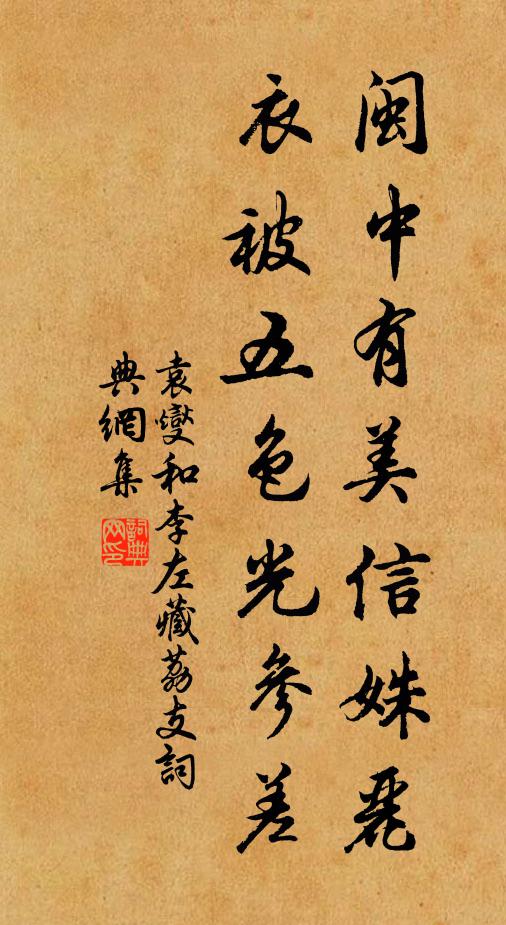 閩中有美信姝麗
衣被五色光參差
袁燮和李左藏荔支詞
典網集
詞典網印